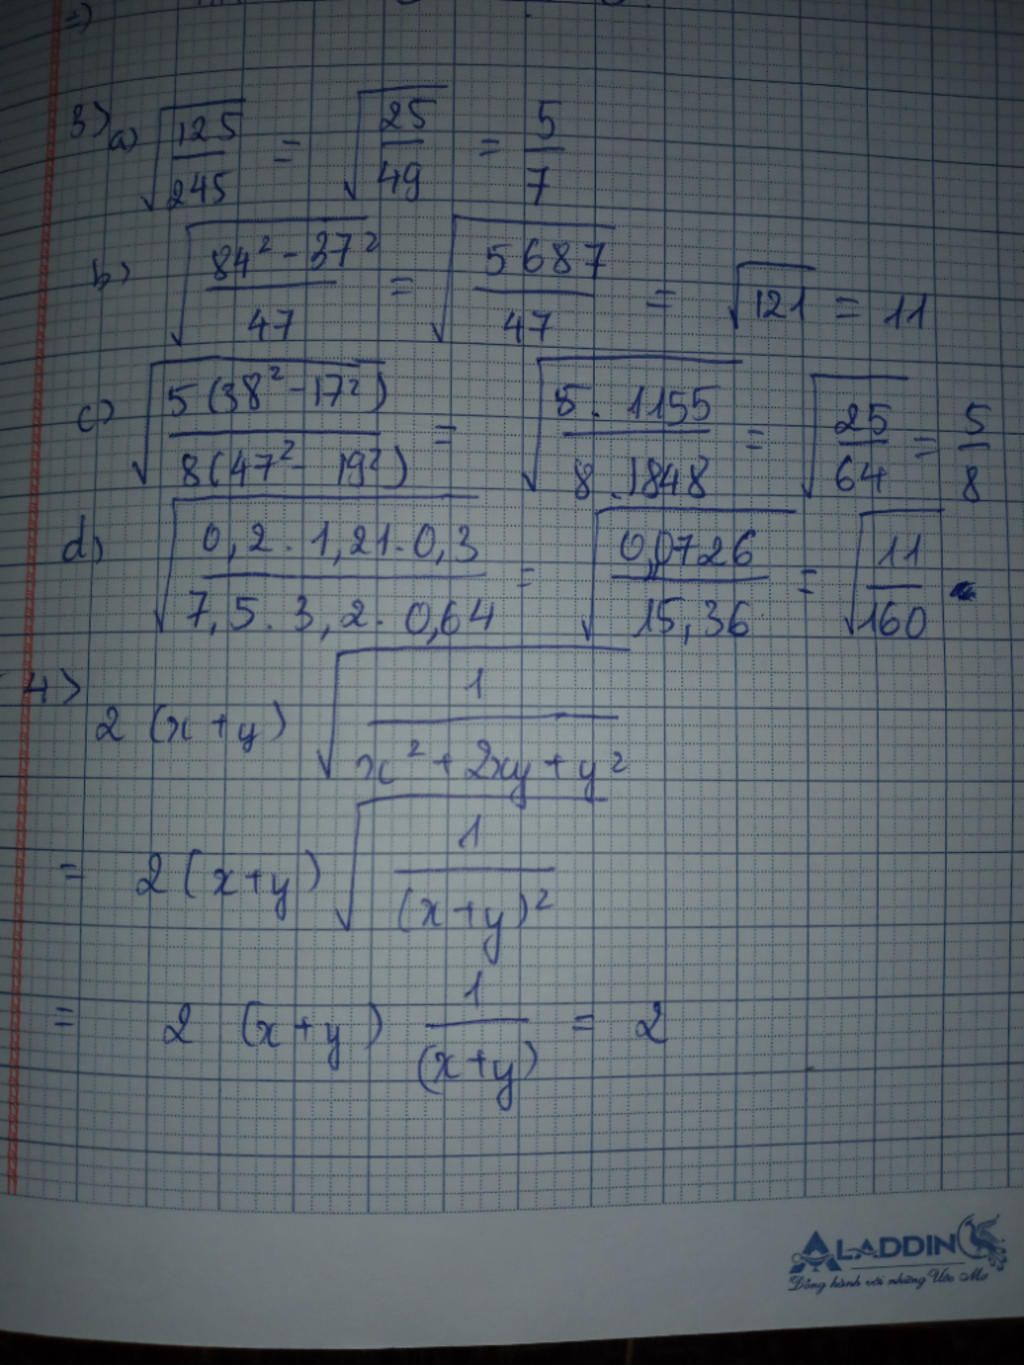 =)
3) a) √(125/245) = √(25/49) = 5/7
b) √((84² - 37²)/47) = √(5687/47) = √121 = 11
c) √(5(38² - 17²)/8(47² - 19²)) = √(5.1155/8.1848) = √(25/64) = 5/8
d) √(0,2.1,21.0,3/7,5.3,2.0,64) = √(0,0726/15,36) = √(11/160)
4) 2 (x+y) √(1/(x² + 2xy + y²))
= 2(x+y) √(1/(x+y)²)
= 2 (x+y) 1/(x+y) = 2
ALADDIN
Đồng hành với những Ước Mơ